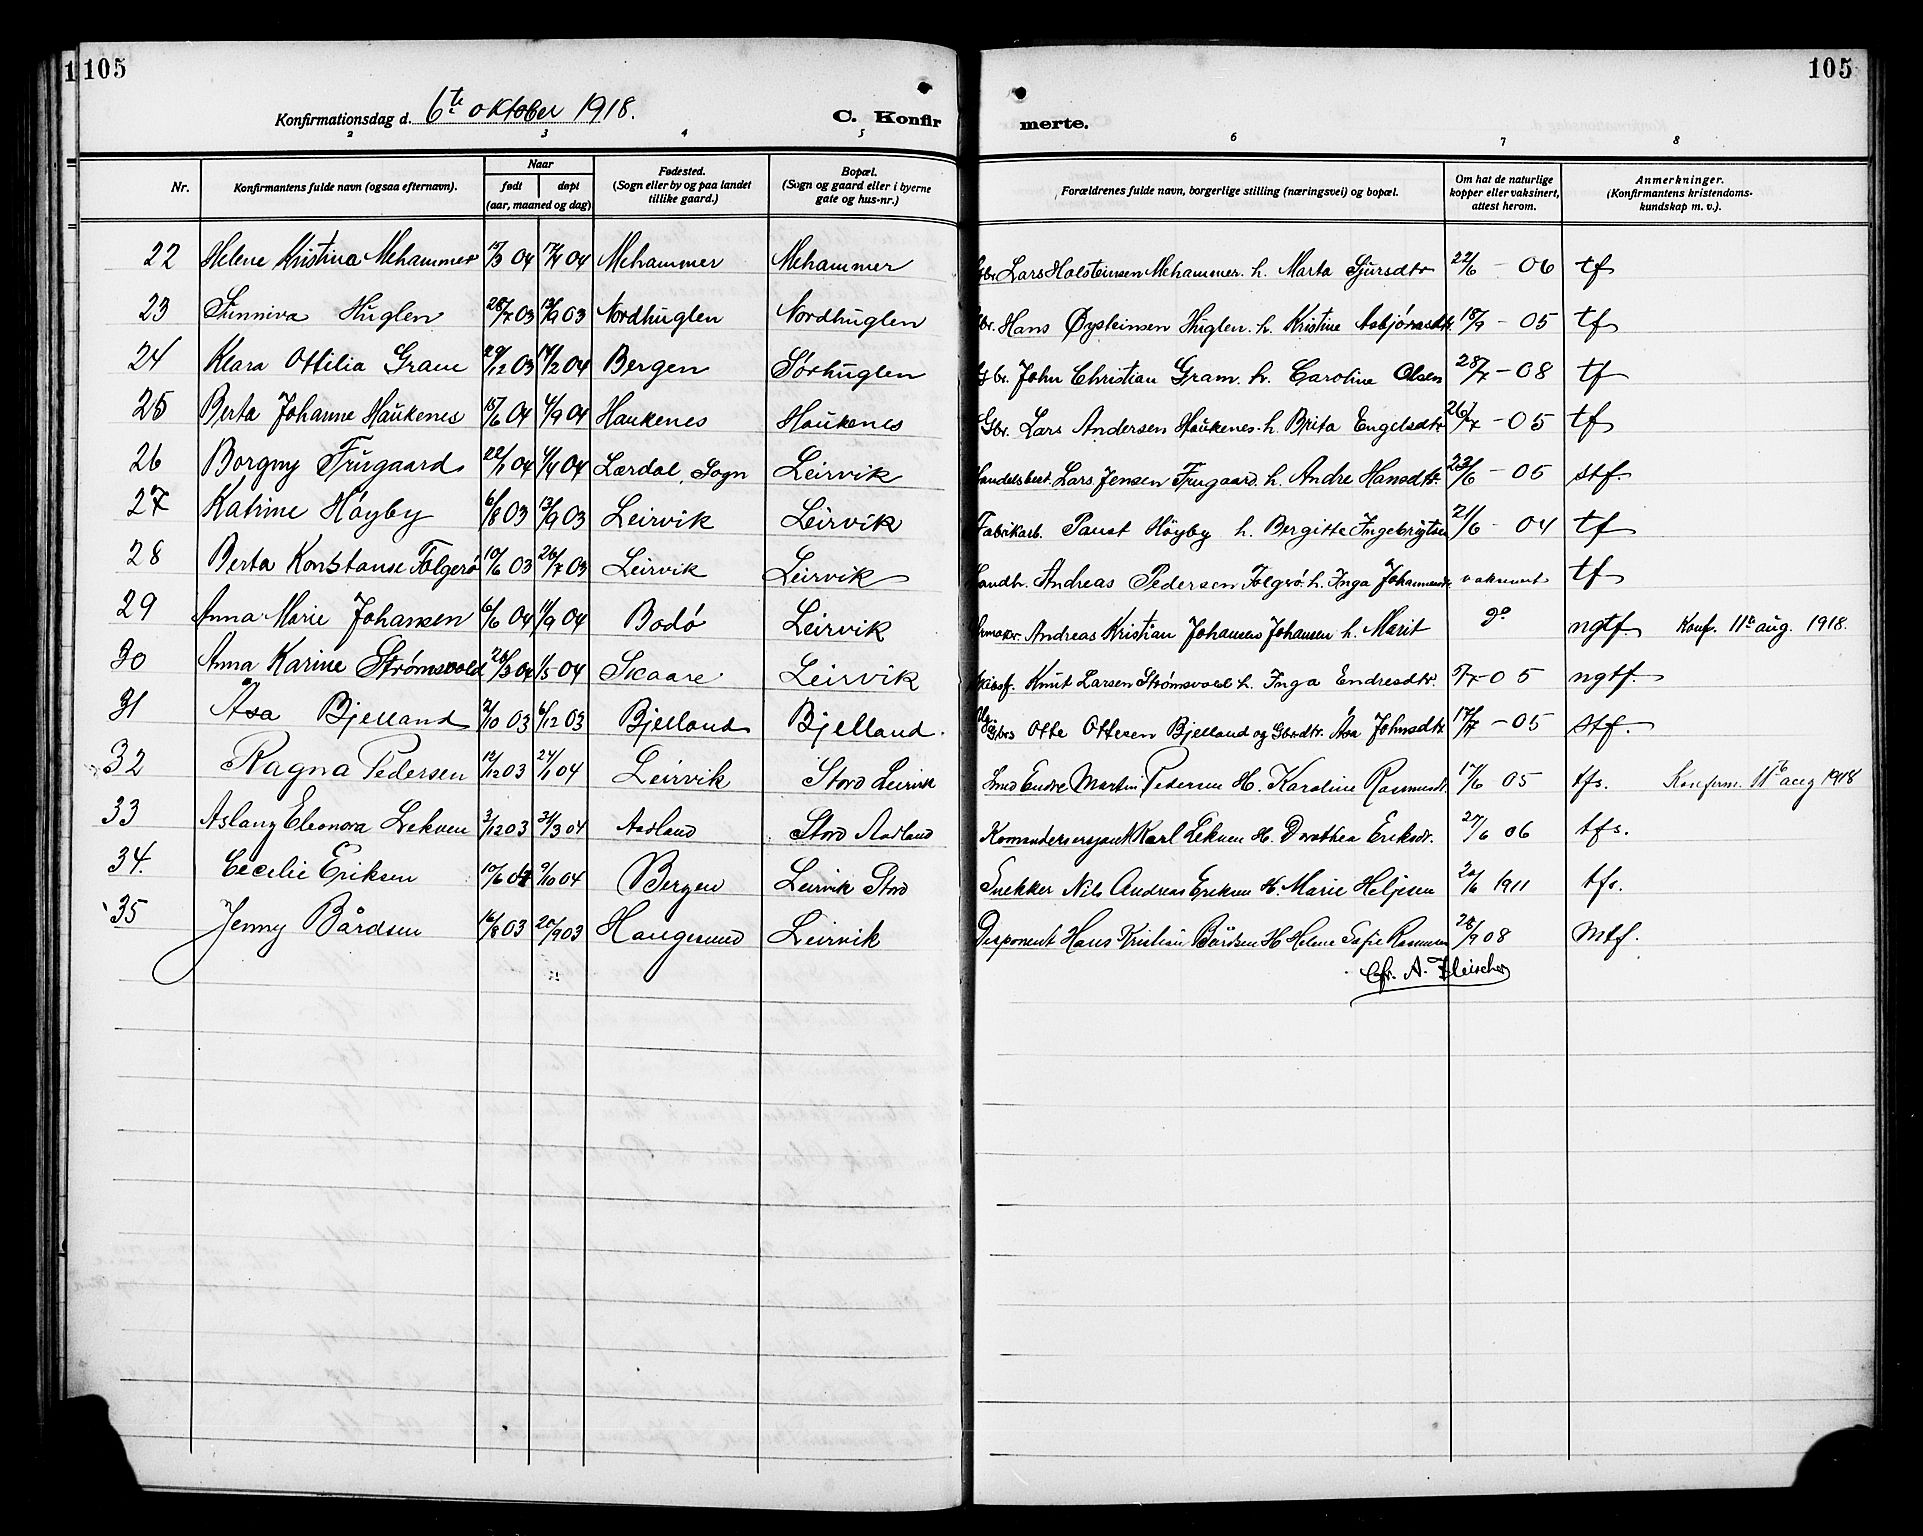 105
105
Konfirmationsdag d. 6te oktober 1918.
C. Konfir
merte.
2 3 4 5 6 7 8
Nr. Konfirmantens fulde navn (ogsaa efternavn). Naar født døpt (aar, maaned og dag) Fødested. (Sogn eller by og paa landet tillike gaard.) Bopæl. (Sogn og gaard eller i byerne gate og hus-nr.) Forældrenes fulde navn, borgerlige stilling (næringsvei) og bopæl. Om hat de naturlige kopper eller vaksinert, attest herom. Anmerkninger. (Konfirmantens kristendomskundskap m. v.).
22 Helene Kristina Mehammer 15/3 04 17/4 04 Mehammer Mehammer Gbr. Lars Holsteinsen Mehammer. h. Marta Sjursdtr 22/6 - 06 tf
23 Sunniva Huglen 28/7 03 13/9 03 Nordhuglen Nordhuglen Gbr. Hans Øysteinsen Huglen. h. Kristine Asbjørnsdtr 18/9 - 05 tf
24 Klara Ottilia Gram 29/12 03 14/2 04 Bergen Sørhuglen Gbr. John Christian Gram. h. Caroline Olsen 28/7 - 08 tf
25 Berta Johanne Haukenes 15/6 04 4/9 04 Haukenes Haukenes Gbr. Lars Andersen Haukenes. h. Brita Engelsdtr 26/7 - 05 tf
26 Borgny Frugaard 22/1 04 4/4 04 Lærdal, Sogn Leirvik Handelsbest. Lars Jensen Frugaard. h. Andre Hansdtr. 23/6 - 05 stf.
27 Katrine Høyby 6/8 03 13/9 03 Leirvik Leirvik Fabrikarb. Paust Høyby h. Bergitte Ingebrigtsen 21/6 - 04 tf
28 Berta Konstanse Folgerø 10/6 03 26/7 03 Leirvik Leirvik Landh. Andreas Pedersen Folgerø. h. Inga Johannesdtr. vaksinert tf
29 Anna Marie Johansen 6/6 04 11/9 04 Bodø Leirvik Andreas Kristian Johansens Johansen h. Marit do ngtf Konf. 11te aug. 1918.
30 Anna Karine Strømsvold 26/3 04 1/5 04 Skaare Leirvik Knut Larsen Strømsvold h. Inga Endresdtr. 5/7 - 05 ngtf.
31 Åsa Bjelland 2/10 03 6/12 03 Bjelland Bjelland. Gbrs Otte Ottesen Bjelland og Gbrdtr. Åsa Johnsdtr 17/7 - 05 stf.
32 Ragna Pedersen 12/12 03 24/1 04 Leirvik Stord Leirvik Smed Endre Martin Pedersen H. Karoline Rasmusdt. 17/6 05 tfs. Konferm. 11te aug 1918
33 Aslaug Eleonora Lekven 3/12 03 31/3 04 Aadland Stord Aadland Komandersersjant Karl Lekven H. Dorothea Eriksdr. 27/6 06 tfs.
34. Cecelie Eriksen 10/6 04 9/10 04 Bergen Leirvik Stord Snekker Nils Andreas Eriksen H. Marie Heljesen 20/6 1911 tfs.
35 Jenny Bårdsen 16/8 03 20/9 03 Haugesund Leirvik Disponent Hans Kristian Bårdsen H Helene Sofie Rasmusen 28/9 08 Mtf.
Chr. A. Fleischer